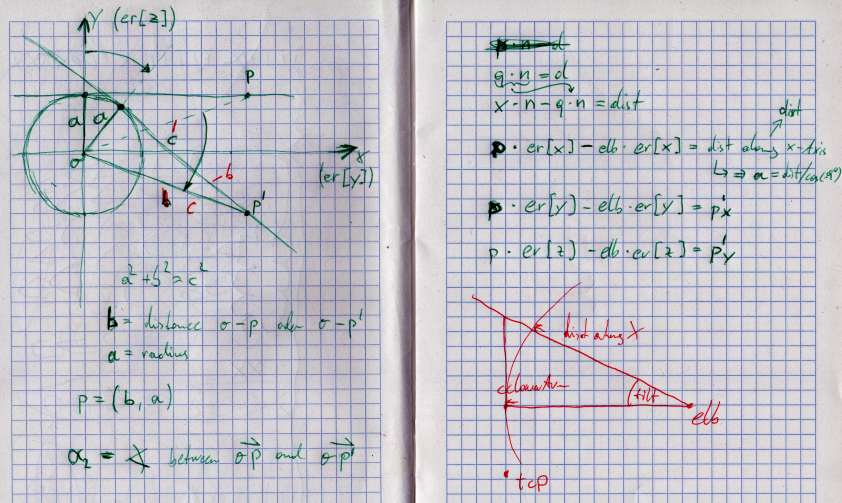 Y (er[z])
P
a
a
c'
o
X
(er[y])
b
b
c
P'
a² + b² = c²
b = distance o-p oder o-p'
a = radius
p = (b, a)
α₂ = ∢ between op and op'
p · n = d
q · n = d
x · n - q · n = dist
dist
p · er[x] - elb · er[x] = dist along x-Axis
↳ ⇒ a = dist/cos(20°)
p · er[y] - elb · er[y] = p'x
p · er[z] - elb · er[z] = p'y
dist along X
tilt
elb
tcp